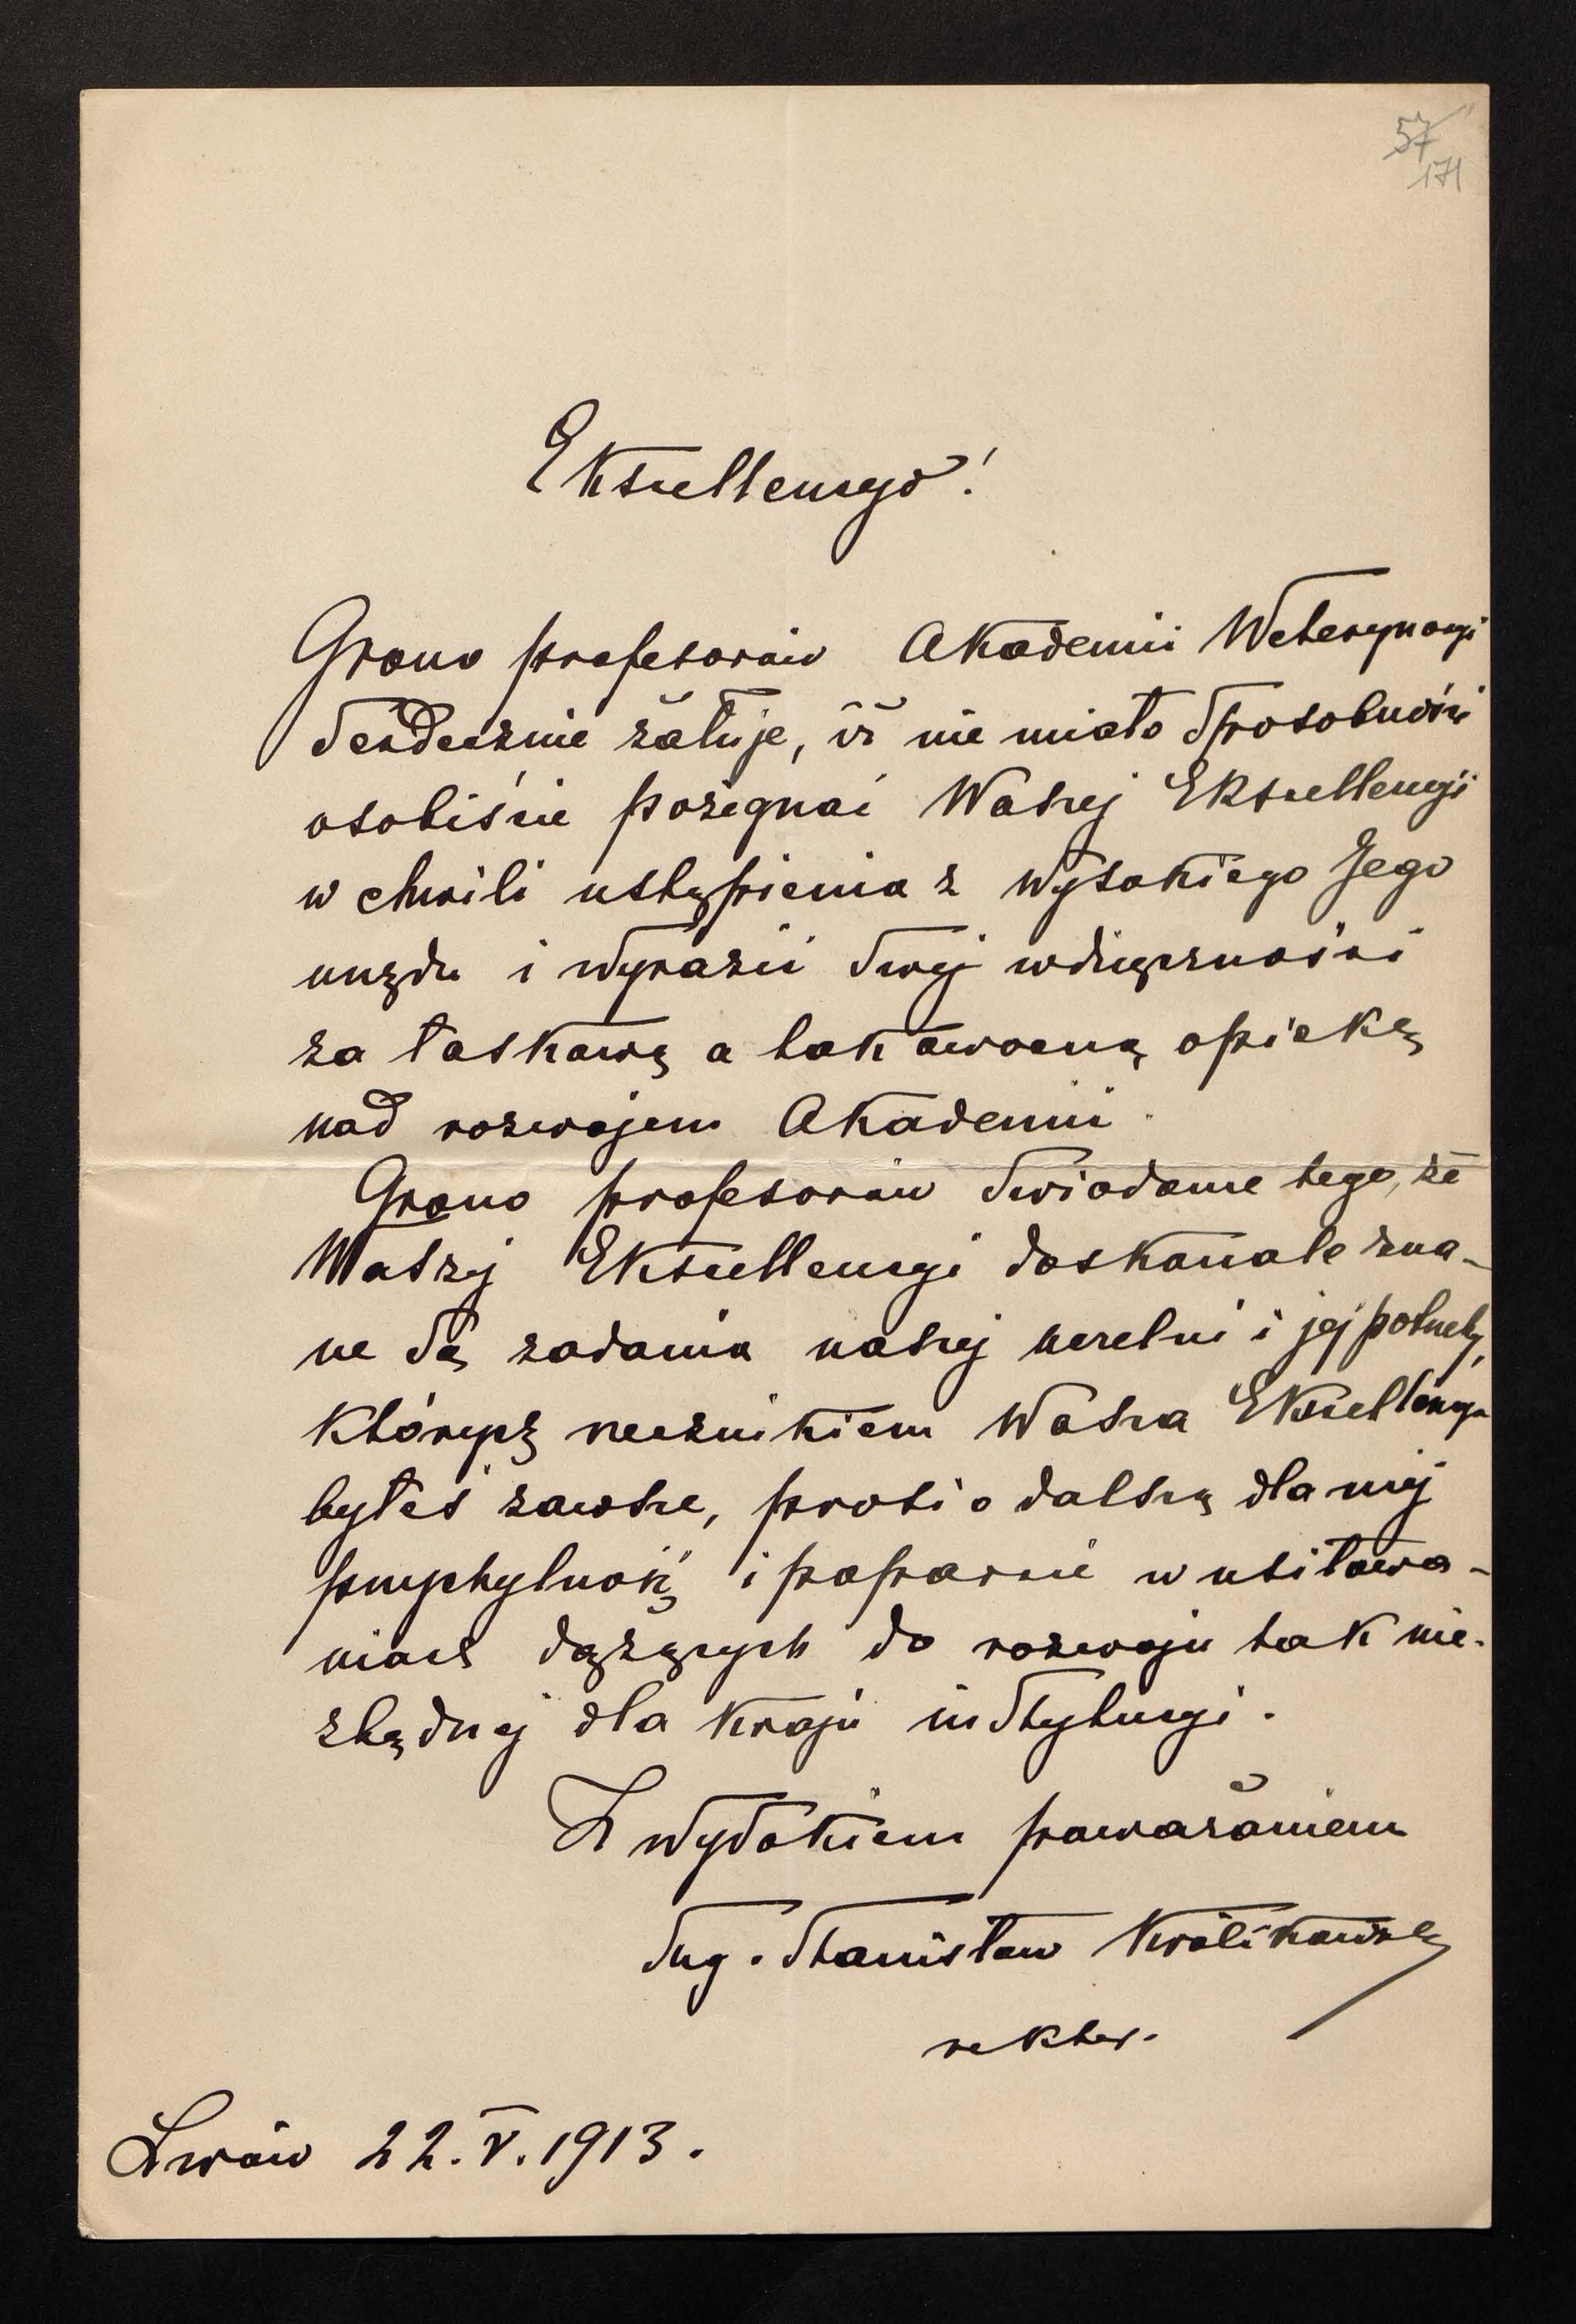 57
171
Ekscellencyo!
Grono profesorów Akademii Weterynaryi
serdecznie żałuje, iż nie miało sposobności
osobiście pożegnać Waszej Ekscellencyi
w chwili ustąpienia z wysokiego Jego
urzędu i wyrazić swej wdzięczności
za łaskawą a tak owocną opiekę
nad rozwojem Akademii.
Grono profesorów świadome tego, że
Waszej Ekscellencyi doskonale zna-
ne są zadania naszej uczelni i jej potrzeby,
których rzecznikiem Wasza Ekscellencya
byłeś zawsze, prosi o dalszą dla niej
przychylność i poparcie w usiłowa-
niach dążących do rozwoju tak nie-
zbędnej dla kraju instytucyi.
Z wysokiem poważaniem
Stanisław Królikowski
rektor.
Lwów 22.V.1913.